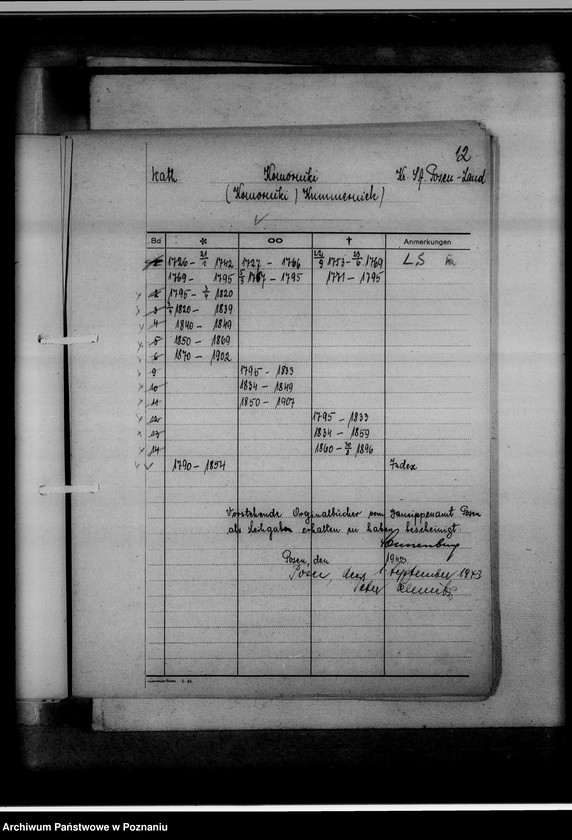 12
kath. Komorniki Kr. Sf. Posen-Land
(Komorniki / Kummernick)
Bd * ∞ † Anmerkungen
1 1726 - 21/1 1742 1727 - 1766 1753 - 1769 LS
1769 - 1795 1767 - 1795 1771 - 1795
2 1795 - 3/4 1820
3 3/4 1820 - 1839
4 1840 - 1849
5 1850 - 1869
6 1870 - 1902
9 1795 - 1833
10 1834 - 1849
11 1850 - 1907
12 1795 - 1833
13 1834 - 1859
14 1860 - 1896
1790 - 1854 Index
Vorstehende Orginalbücher vom Gausippenamt Posen
als Leihgaben erhalten zu haben bescheinigt
Posen, den 1943
Posen, den 1 September 1943
Peter
Archiwum Państwowe w Poznaniu